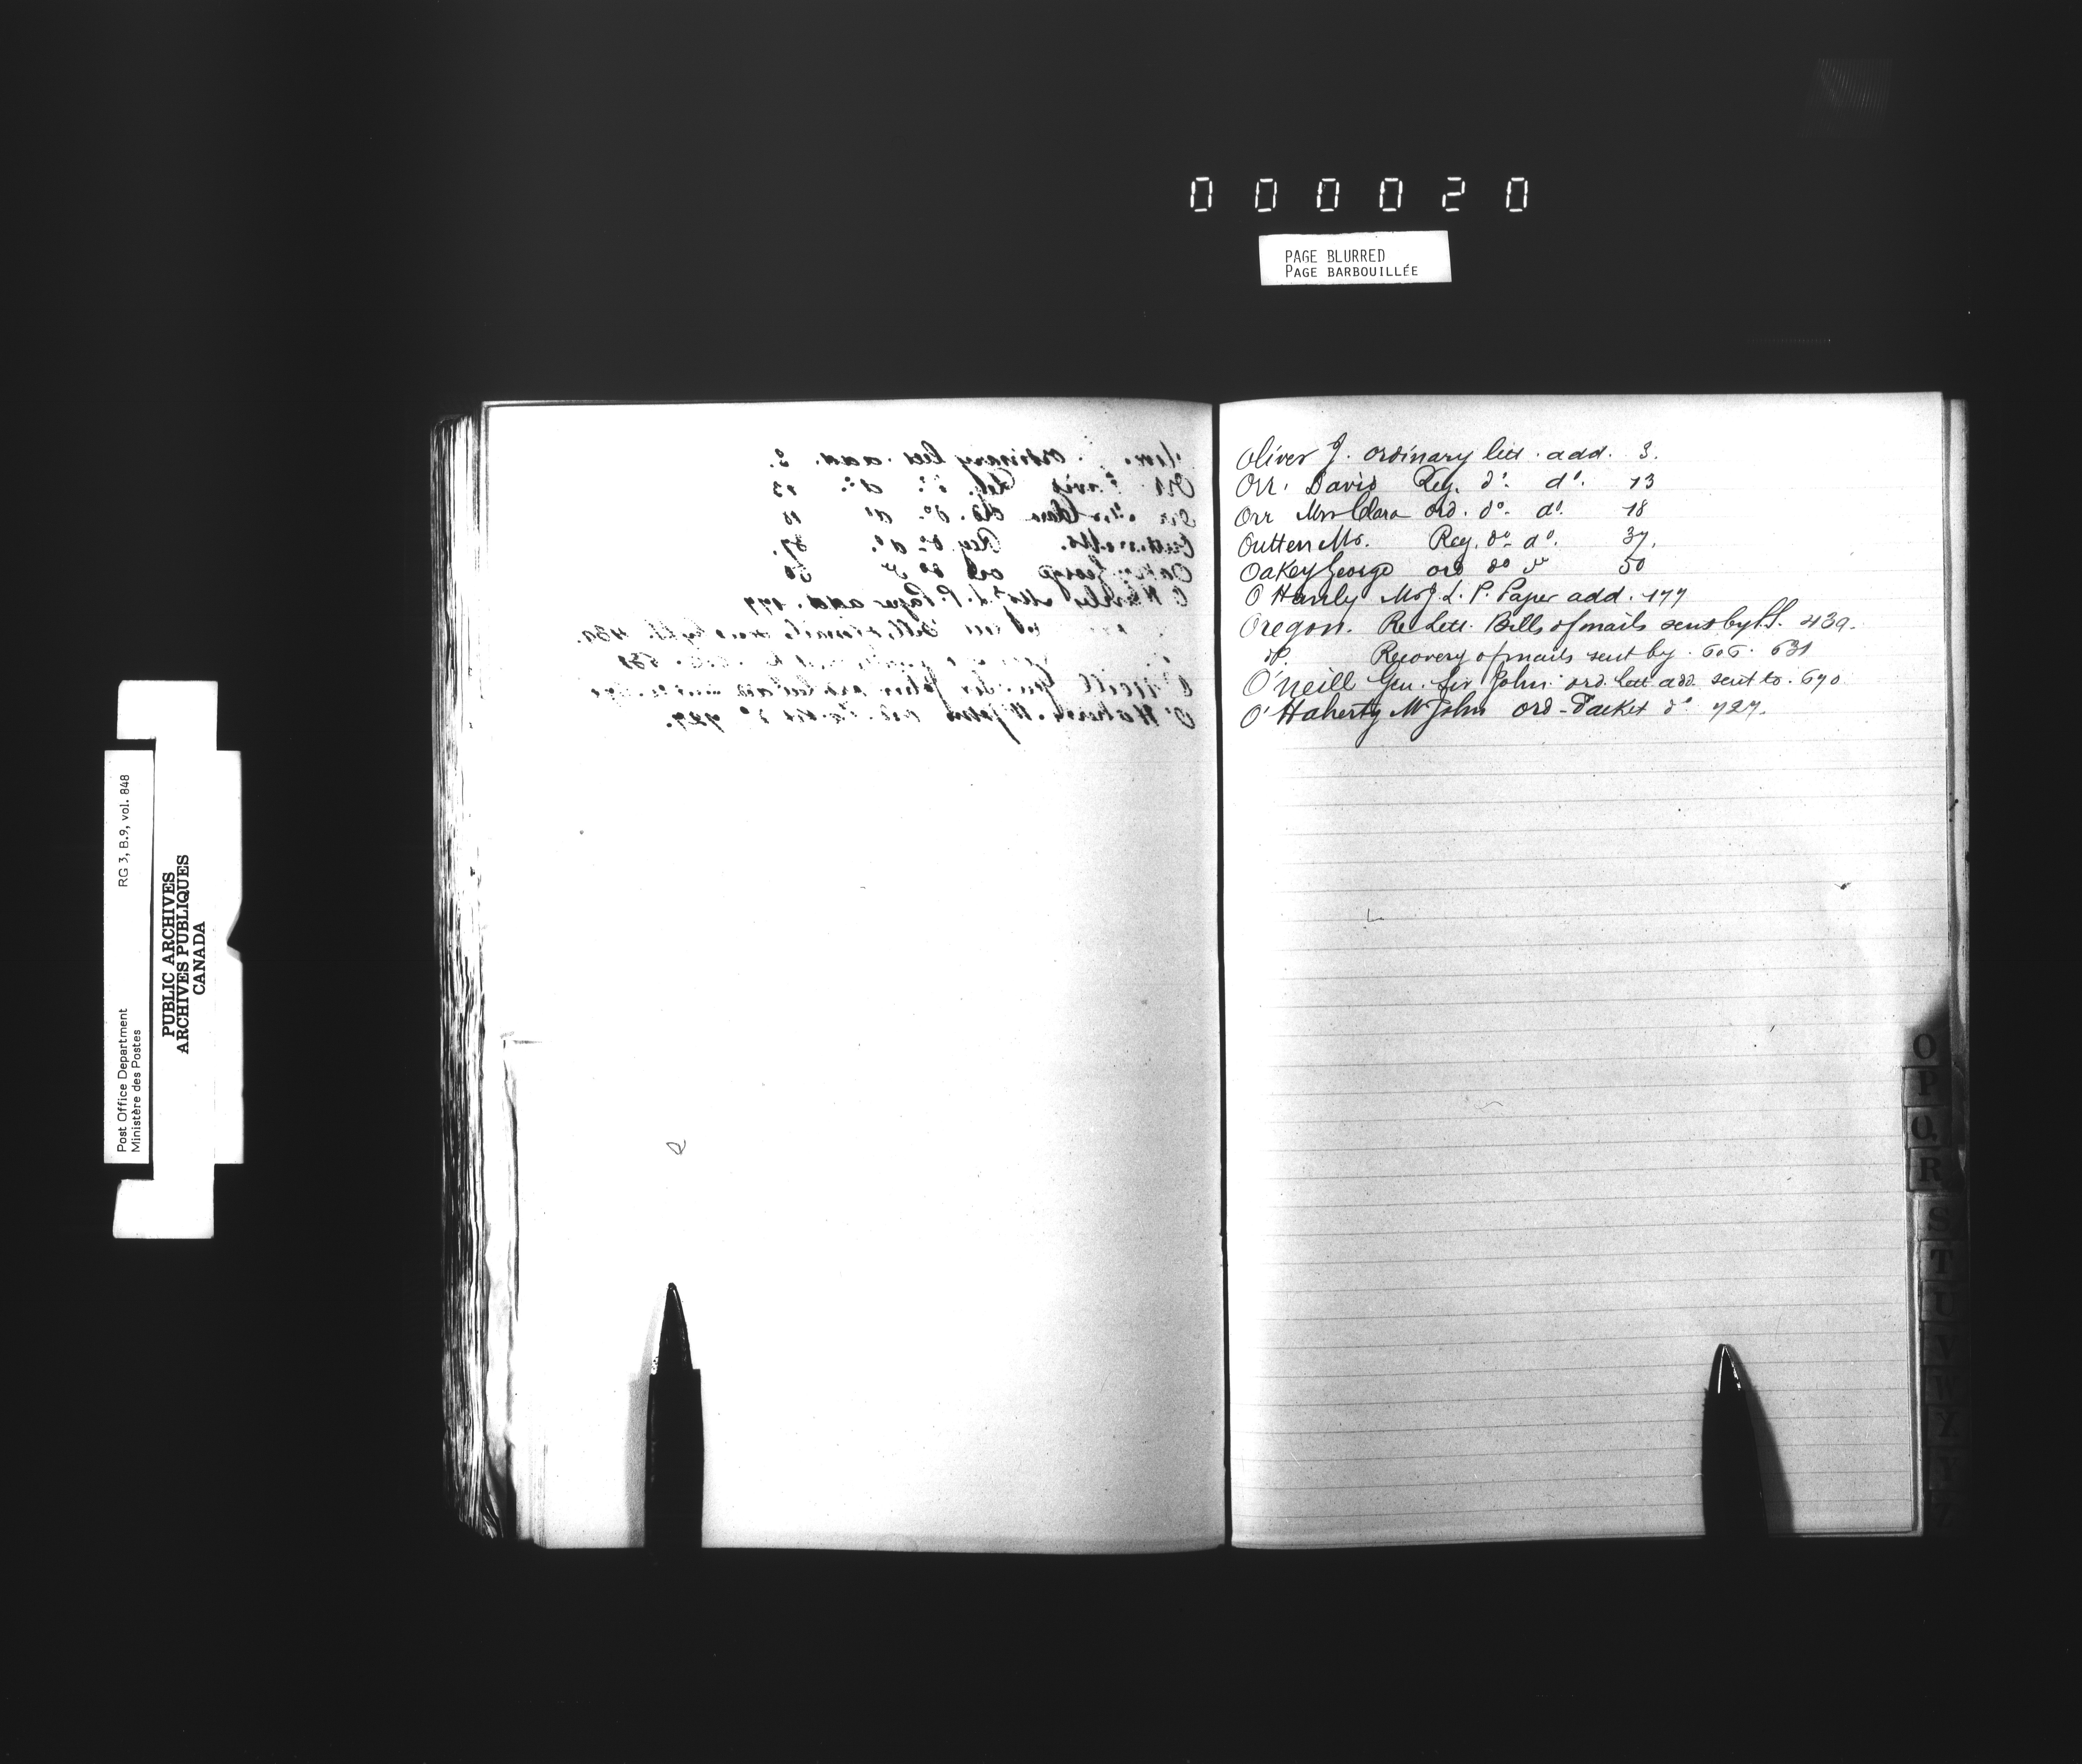 000020
PAGE BLURRED
PAGE BARBOUILLÉE
Oliver J. ordinary lett. add. 3.
Orr. David Reg. do. do. 13
Orr Mrs Clara ord. do. do. 18
Outten Ms. Reg. do. do. 37.
Oakey George ord do do 50
O'Hanly Mrs J. L. P. Paper add. 177
Oregon. Re Lett. Bills of mails sent by S.S. 439.
do. Recovery of mails sent by 631
O'Neill Gen. Sir John ord. lett add. sent to. 690
O'Haherty Mr John ord-Packet do 727.
O
P
Q
R
S
T
RG 3, B.9, vol. 848
Post Office Department
Ministère des Postes
PUBLIC ARCHIVES
ARCHIVES PUBLIQUES
CANADA